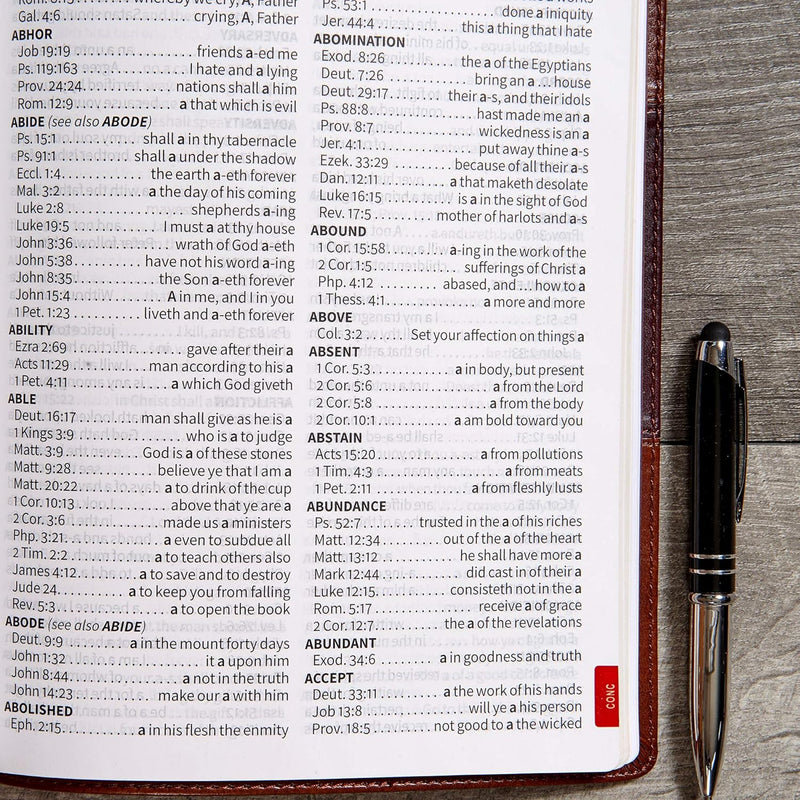 whereby we cry, A, Father
Gal. 4:6 crying, A, Father
ABHOR
Job 19:19 friends a-ed me
Ps. 119:163 I hate and a lying
Prov. 24:24 nations shall a him
Rom. 12:9 a that which is evil
ABIDE (see also ABODE)
Ps. 15:1 shall a in thy tabernacle
Ps. 91:1 shall a under the shadow
Eccl. 1:4 the earth a-eth forever
Mal. 3:2 a the day of his coming
Luke 2:8 shepherds a-ing
Luke 19:5 I must a at thy house
John 3:36 wrath of God a-eth
John 5:38 have not his word a-ing
John 8:35 the Son a-eth forever
John 15:4 A in me, and I in you
1 Pet. 1:23 liveth and a-eth forever
ABILITY
Ezra 2:69 gave after their a
Acts 11:29 man according to his a
1 Pet. 4:11 a which God giveth
ABLE
Deut. 16:17 man shall give as he is a
1 Kings 3:9 who is a to judge
Matt. 3:9 God is a of these stones
Matt. 9:28 believe ye that I am a
Matt. 20:22 a to drink of the cup
1 Cor. 10:13 above that ye are a
2 Cor. 3:6 made us a ministers
Php. 3:21 a even to subdue all
2 Tim. 2:2 a to teach others also
James 4:12 a to save and to destroy
Jude 24 a to keep you from falling
Rev. 5:3 a to open the book
ABODE (see also ABIDE)
Deut. 9:9 a in the mount forty days
John 1:32 it a upon him
John 8:44 a not in the truth
John 14:23 make our a with him
ABOLISHED
Eph. 2:15 a in his flesh the enmity
Ps. 53:1 done a iniquity
Jer. 44:4 this a thing that I hate
ABOMINATION
Exod. 8:26 the a of the Egyptians
Deut. 7:26 bring an a ... house
Deut. 29:17 their a-s, and their idols
Ps. 88:8 hast made me an a
Prov. 8:7 wickedness is an a
Jer. 4:1 put away thine a-s
Ezek. 33:29 because of all their a-s
Dan. 12:11 a that maketh desolate
Luke 16:15 is a in the sight of God
Rev. 17:5 mother of harlots and a-s
ABOUND
1 Cor. 15:58 a-ing in the work of the
2 Cor. 1:5 sufferings of Christ a
Php. 4:12 abased, and ... how to a
1 Thess. 4:1 a more and more
ABOVE
Col. 3:2 Set your affection on things a
ABSENT
1 Cor. 5:3 a in body, but present
2 Cor. 5:6 a from the Lord
2 Cor. 5:8 a from the body
2 Cor. 10:1 a am bold toward you
ABSTAIN
Acts 15:20 a from pollutions
1 Tim. 4:3 a from meats
1 Pet. 2:11 a from fleshly lusts
ABUNDANCE
Ps. 52:7 trusted in the a of his riches
Matt. 12:34 out of the a of the heart
Matt. 13:12 he shall have more a
Mark 12:44 did cast in of their a
Luke 12:15 consisteth not in the a
Rom. 5:17 receive a of grace
2 Cor. 12:7 the a of the revelations
ABUNDANT
Exod. 34:6 a in goodness and truth
ACCEPT
Deut. 33:11 a the work of his hands
Job 13:8 will ye a his person
Prov. 18:5 not good to a the wicked
CONC